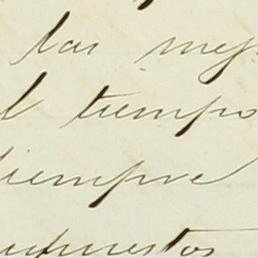 las mej
l tiempo
siempre
upuestos